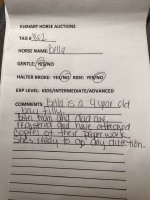 ELKHART HORSE AUCTIONS
TAB # 862
HORSE NAME: bella
GENTLE: YES/NO
HALTER BROKE: YES/NO RIDE: YES/NO
EXP LEVEL: KIDS/INTERMEDIATE/ADVANCED
COMMENTS: bella is a 4 year old
bay filly.
both mom and dad are
registered and have attached
copies of their paperwork.
She's ready to go any direction.